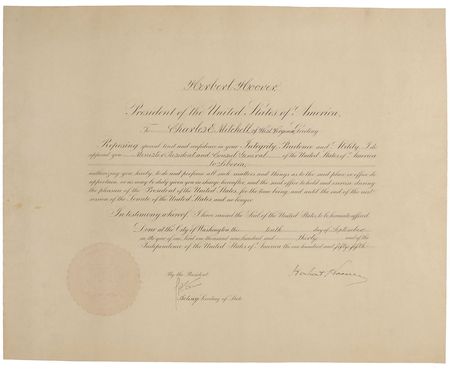 Herbert Hoover,
President of the United States of America,
To Charles E. Mitchell, of West Virginia, Greeting:
Reposing special trust and confidence in your Integrity, Prudence and Ability, I do
appoint you Minister Resident and Consul General of the United States of America
to Liberia,
authorizing you hereby to do and perform all such matters and things as to the said place or office do
appertain, or as may be duly given you in charge hereafter, and the said office to hold and exercise during
the pleasure of the President of the United States for the time being, and until the end of the next
session of the Senate of the United States and no longer.
In testimony whereof, I have caused the Seal of the United States to be hereunto affixed.
Done at the City of Washington the tenth day of September
in the year of our Lord one thousand nine hundred and thirty and of the
Independence of the United States of America the one hundred and fifty-fifth.
By the President:
Herbert Hoover
Acting Secretary of State